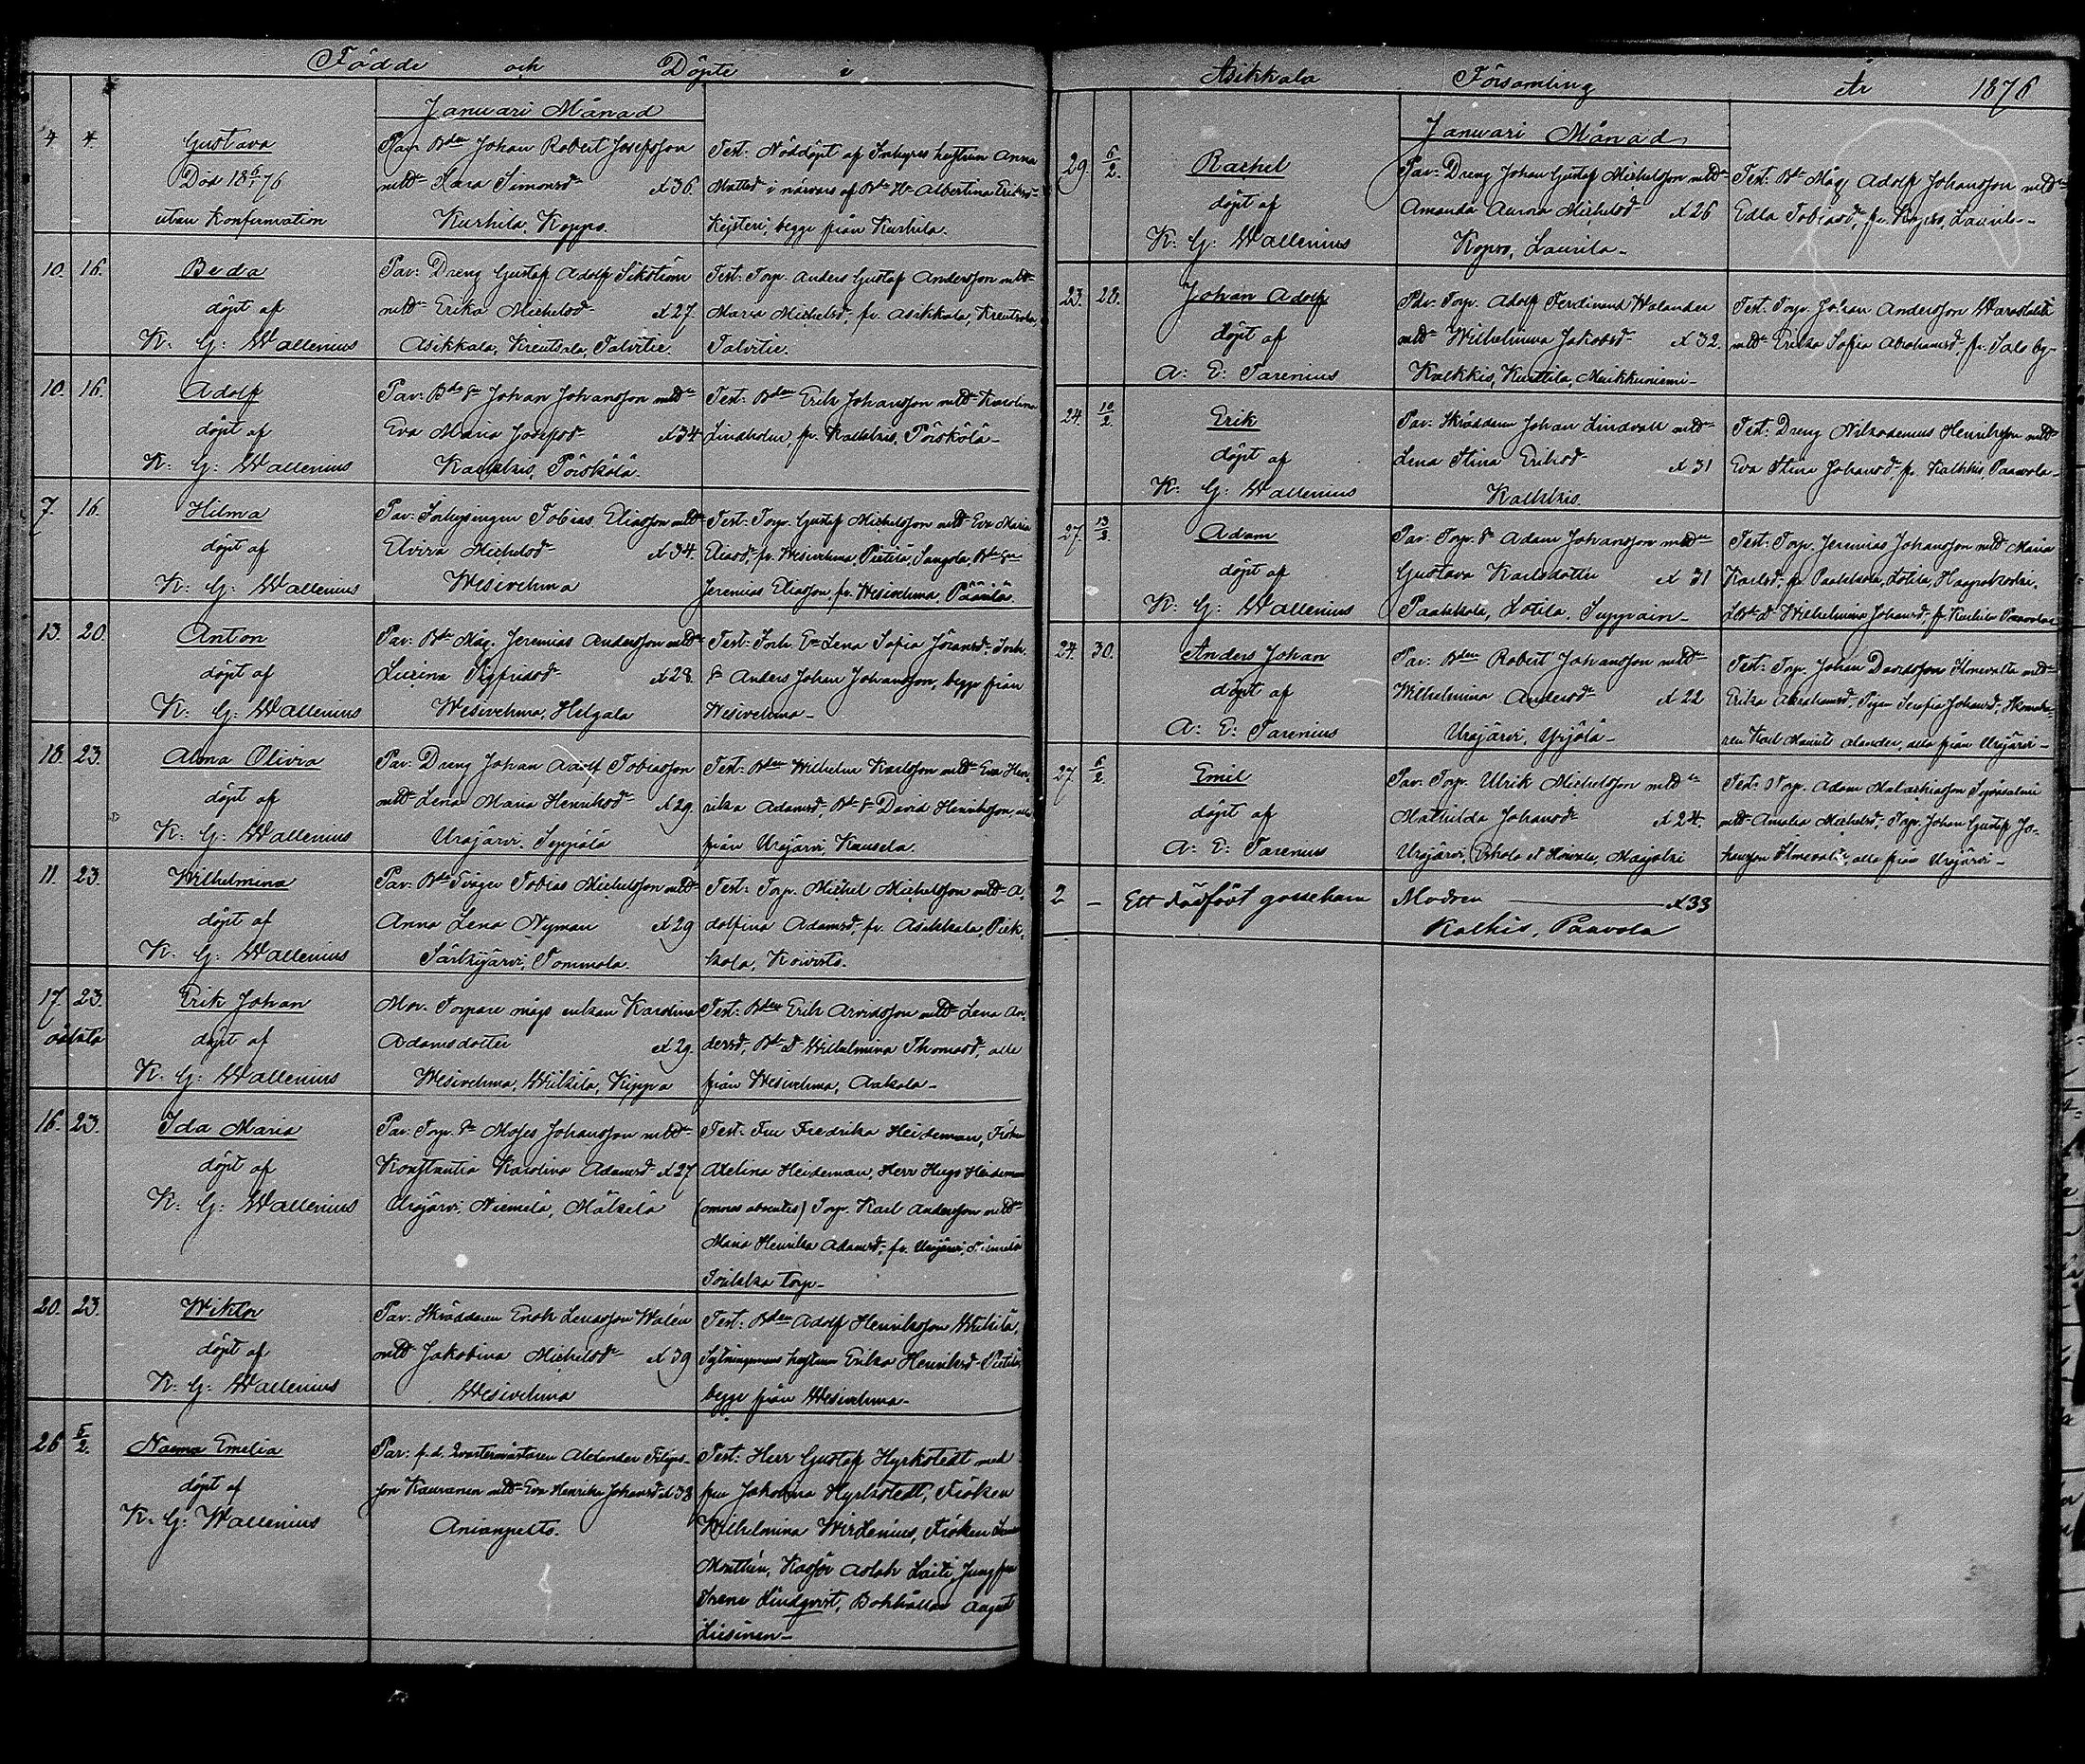 Födde och Döpte i
Januari Månad
4 4. Gustava
Död 18 6/1 76
utan Konfirmation
Par. Bden Johan Robert Josefsson
mtdn Sara Simonsd. Æt 36.
Kurhila, Koppo.
Test: Nöddöpt af hustrun Anna
Mattsd i närvaro af Albertina Eriksd
begge från Kurhila.
10. 16. Beda
döpt af
K: G: Wallenius
Par: Dreng Gustaf Adolf Sikström
mtdn Erika Michelsd Æt 27.
Asikkala, Kreutsala, Talvitie.
Test: Torp. Anders Gustaf Andersson mtd
Maria Michelsd, fr. Asikkala, Kreutsala,
Talvitie.
10. 16. Adolf
döpt af
K: G: Wallenius
Par: Bde Sn Johan Johansson mtdn
Eva Maria Josefsd Æt 34
Kalkkis, Pörskölä.
Test: Bden Erik Johansson mtd Karolina
Lindholm, fr. Kalkkis, Pörskölä
7. 16. Hilma
döpt af
K: G: Wallenius
Par: Inhysingen Tobias Eliasson mtd
Elvira Michelsd Æt 34.
Wesivehma
Test: Torp. Gustaf Michelsson mtd Eva Maria
Eliasd, fr. Wesivehma, Pietilä, Bde Sn
Jeremias Eliasson fr. Wesivehma, Päärilä.
13. 20. Anton
döpt af
K: G: Wallenius
Par: Bde Måg. Jeremias Andersson mtd
Luisina Sigfridsd Æt 28.
Wesivehma, Helgala
Test: Inh. En Lena Sofia Göransd. Inh.
Sn Anders Johan Johansson, begge från
Wesivehma
18. 23. Alma Olivia
döpt af
K: G: Wallenius
Par: Dreng Johan Adolf Tobiasson
mtd Lena Maria Henriksd Æt 29.
Urajärvi, Seppälä
Test: Bden Wilhelm Karlsson mtd Eva Hen
rika Adamsd, Bde Sn David Henriksson, alla
från Urajärvi, Kausela.
11. 23. Wilhelmina
döpt af
K: G: Wallenius
Par: Bde Svåger Tobias Michelsson mtd
Anna Lena Nyman Æt 29
Särkijärvi, Tommola.
Test: Torp. Michel Michelsson mtd A
dolfina Adamsd, fr. Asikkala, Piek
kola, Koivisto.
17. 23. Erik Johan
oäkta döpt af
K: G: Wallenius
Mor. Torpare mågs enkan Karolina
Adamsdotter Æt 29.
Wesivehma, Wiikilä, Kippo
Test: Bden Erik Arvidsson mtd Lena An
dersd, Bde D Wilhelmina Thomasd, alla
från Wesivehma, Aakala
16. 23. Ida Maria
döpt af
K: G: Wallenius
Par: Torp. Sn Moses Johansson mtd
Konstantia Karolina Adamsd Æt 27
Urajärvi, Niemelä, Mäkelä
Test: Fru Fredrika Heideman, Fröken
Axelina Heideman, Herr Hugo Heideman
(omnes absentes) Torp. Karl Andersson mtd
Maria Henrika Adamsd, fr. Urajärvi, Niemelä
Torp
20. 23. Wiktor
döpt af
K: G: Wallenius
Par: Skräddaren Enok Walén
mtd Jakobina Michelsd Æt 39
Wesivehma
Test: Bden Adolf Henriksson Wiikilä,
Sytningemans hustrun Erika Henriksd Pietilä,
begge från Wesivehma
26 6/2. Naema Emelia
döpt af
K. G: Wallenius
Par: f.d. Qvartermästaren Alexander Filips
son Kauranen mtd Eva Henrika Johansd Æt 33
Anianpelto.
Test: Herr Gustaf Hyrkstedt med
fru Jakobina Hyrkstedt, Fröken
Wilhelmina Wirzenius, Fröken
Monthén, Aolah Laiti, Jungfru
Irene Lindqvist, Bokhållar August
Liesinen
Asikkala Församling År 1876
Januari Månad
29. 6/2. Rachel
döpt af
K: G: Wallenius
Par: Dreng Johan Gustaf Michelsson mtdn
Amanda Aurora Michelsd Æt 26
Kopso, Laurila
Test: Bde Måg Adolf Johansson mtdn
Edla Tobiasd, fr. Kopso, Laurila
23. 28. Johan Adolf
döpt af
A: E: Tarenius
Par: Torp. Adolf Ferdinand Walander
mtd Wilhelmina Jakobsd Æt 32.
Kalkkis, Kurttila, Meikkuniemi
Test: Torp. Johan Andersson
mtd Erika Sofia Abrahamsd, fr. Salo by
24. 10/2. Erik
döpt af
K: G: Wallenius
Par: Skräddaren Johan Lindvall mtd
Lena Stina Eriksd Æt 31
Kalkkis.
Test: Dreng Nikodemus Henriksson mtd
Eva Stina Johansd fr. Kalkkis, Paavola
27. 13/2. Adam
döpt af
K: G: Wallenius
Par: Torp. Sn Adam Johansson mtdn
Gustava Karlsdotter Æt 31
Paakkola, Lotila,
Test: Torp. Jeremias Johansson mtd Maria
Karlsd, fr. Paakkola, Lotila,
Bde D Wilhelmina Johansd, fr. Kurhila Paavola
24. 30. Anders Johan
döpt af
A: E: Tarenius
Par: Bden Robert Johansson mtd
Wilhelmina Andersd Æt 22
Urajärvi, Yrjölä
Test: Torp. Johan Davidsson Ilmevalta mtd
Erika Abrahamsd, Pigan Serafia Johansd, Skomaka
ren Karl Maurits Alander, alla från Urajärvi
27. 6/2. Emil
döpt af
A: E: Tarenius
Par: Torp. Ulrik Michelsson mtdn
Mathilda Johansd Æt 24.
Urajärvi, Erkola et Hovila, Maajoki
Test: Torp. Adam Malakiasson
mtd Amalia Michelsd, Torp. Johan Gustaf Jo
hansson Ilmevalta, alla från Urajärvi
2 – Ett dödfödt gossebarn
Modren Æt 33
Kalkis, Paavola